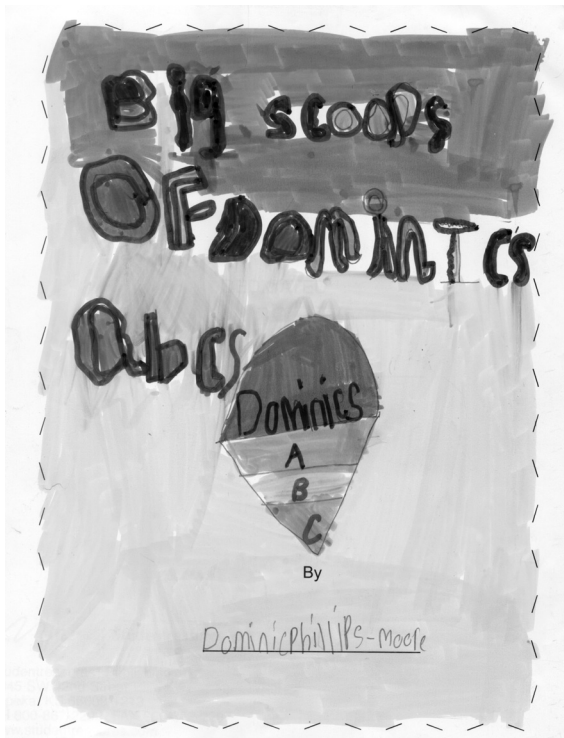 Big scoops
OF DominIcs
abcs
Dominics
A
B
C
By
Dominicphillips-moore